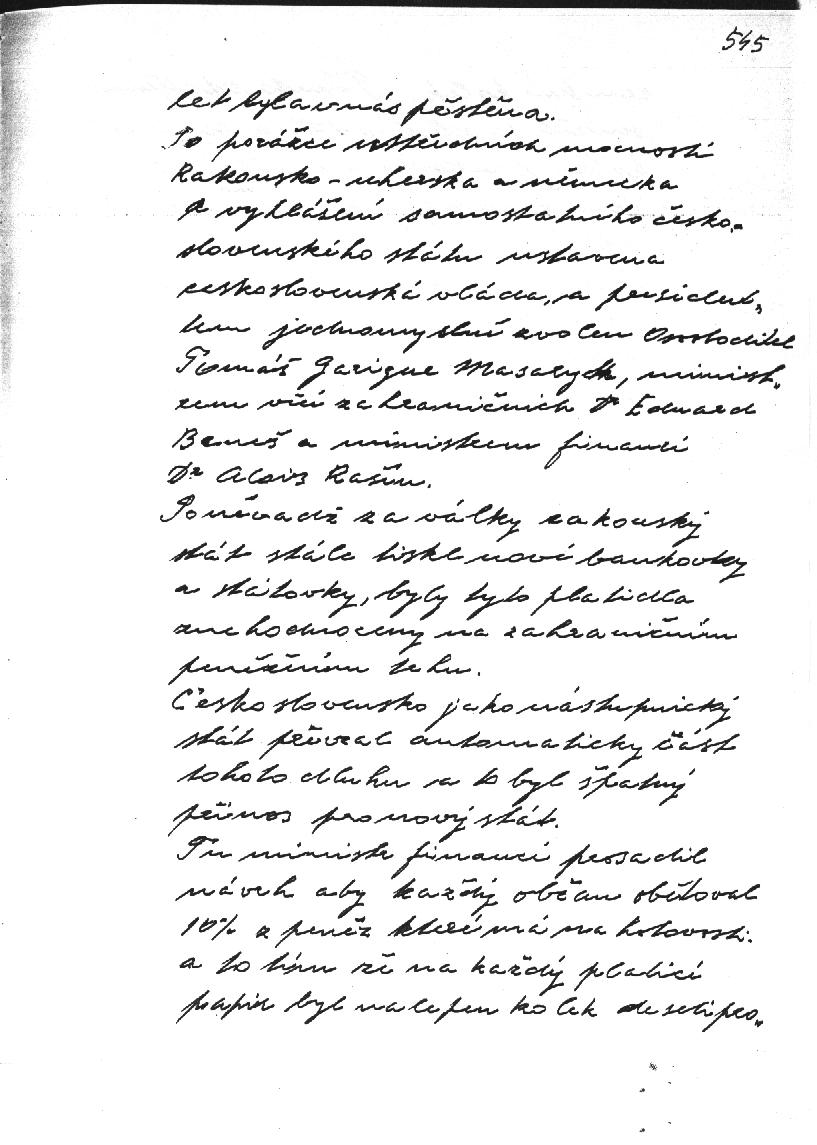 545
let byla u nás pěstěna.
Po porážce ústředních mocností
Rakousko-uherska a německa
a vyhlášení samostatného česko-
slovenského státu ustavena
československá vláda, a presiden„
tem jednomyslně zvolen Osvoboditel
Tomáš Garigue Masaryk, minist„
rem věcí zahraničních Dr Eduard
Beneš a ministrem financí
Dr Alois Rašín.
Poněvadž za války rakouský
stát stále tiskl nové bankovky
a státovky, byly tyto platidla
znehodnoceny na zahraničním
peněžním trhu.
Československo jako nástupnický
stát převzal automaticky část
tohoto dluhu a to byl špatný
přínos pro nový stát.
Tu ministr financí prosadil
návrh aby každý občan obětoval
10% z peněz které má na hotovosti.
a to tím že na každý platící
papír byl nalepen kolek desetipro„